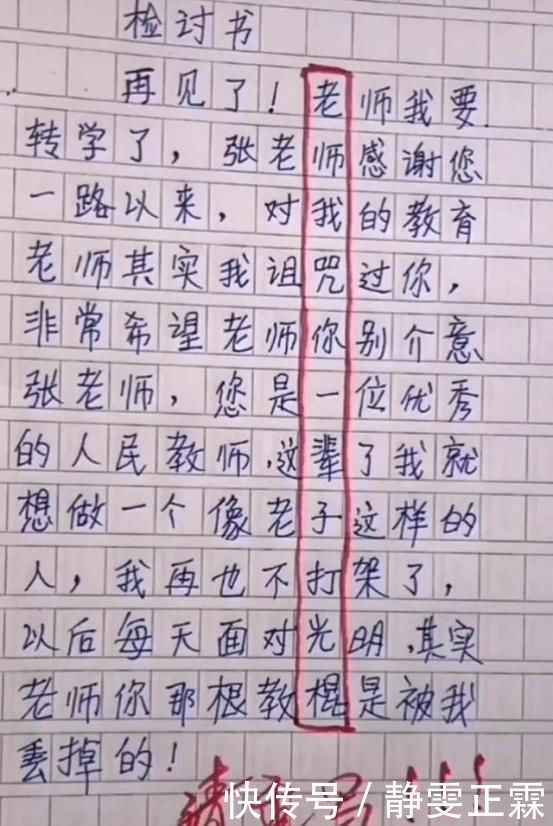 检讨书
再见了！老师我要
转学了，张老师感谢您
一路以来，对我的教育
老师其实我诅咒过你，
非常希望老师你别介意
张老师，您是一位优秀
的人民教师，这辈了我就
想做一个像老子这样的
人，我再也不打架了，
以后每天面对光明，其实
老师你那根教棍是被我
丢掉的！
快传号/静雯正霖